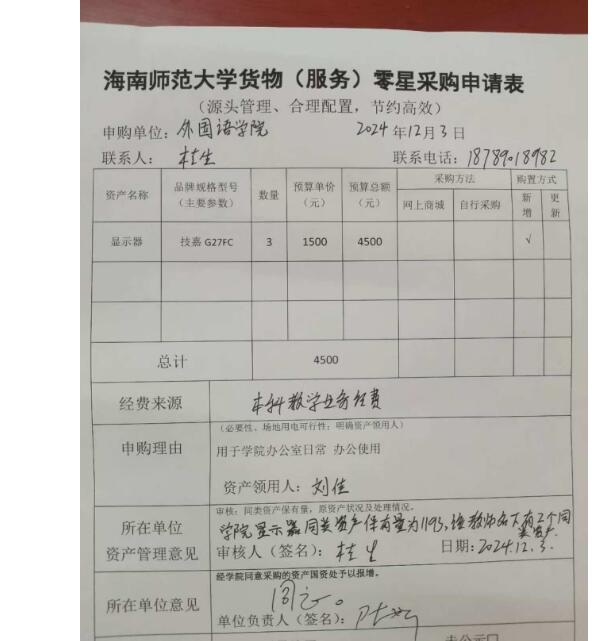 海南师范大学货物（服务）零星采购申请表
（源头管理、合理配置，节约高效）
申购单位：外国语学院 2024年12月3日
联系人：桂生 联系电话：18789018982
资产名称 品牌规格型号（主要参数） 数量 预算单价（元） 预算总额（元） 采购方法 购置方式
网上商城 自行采购 新增 更新
显示器 技嘉 G27FC 3 1500 4500 √
总计 4500
经费来源 本科教学业务经费
（必要性、场地用电可行性；明确资产领用人）
申购理由 用于学院办公室日常 办公使用
资产领用人：刘佳
审核：同类资产保有量，原资产状况及处理情况。
所在单位 学院显示器同类资产保有量为1193，
教师名下有2个同类资产
资产管理意见 审核人（签名）：桂生 日期：2024.12.3.
经学院同意采购的资产国资处予以报增。
所在单位意见 同意。
单位负责人（签名）：